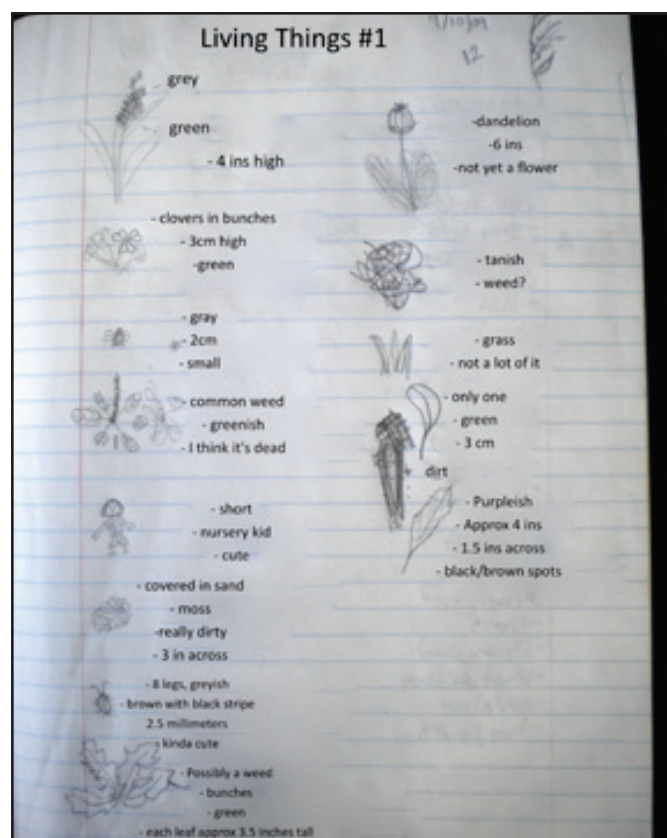 Living Things #1
9/10/09
12
grey
green
- 4 ins high
- clovers in bunches
- 3cm high
-green
- gray
- 2cm
- small
- common weed
- greenish
- I think it's dead
- short
- nursery kid
- cute
- covered in sand
- moss
-really dirty
- 3 in across
- 8 legs, greyish
- brown with black stripe
2.5 millimeters
- kinda cute
- Possibly a weed
- bunches
- green
- each leaf approx 3.5 inches tall
-dandelion
-6 ins
-not yet a flower
- tanish
- weed?
- grass
- not a lot of it
- only one
- green
- 3 cm
dirt
- Purpleish
- Approx 4 ins
- 1.5 ins across
- black/brown spots